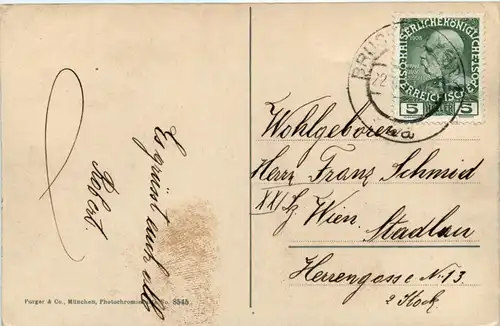 Es grüsst euch alle
Robert
Furger & Co., München, Photochromo No. 8545
BRUCK
22
a
1908
KAISERLICHE KÖNIGLICHE
ÖSTERREICHISCHE
5 HELLER 5
Wohlgeboren
Herrn Franz Schmid
XXI/2 Wien
Stadlau
Herrengasse No 13
2 Stock